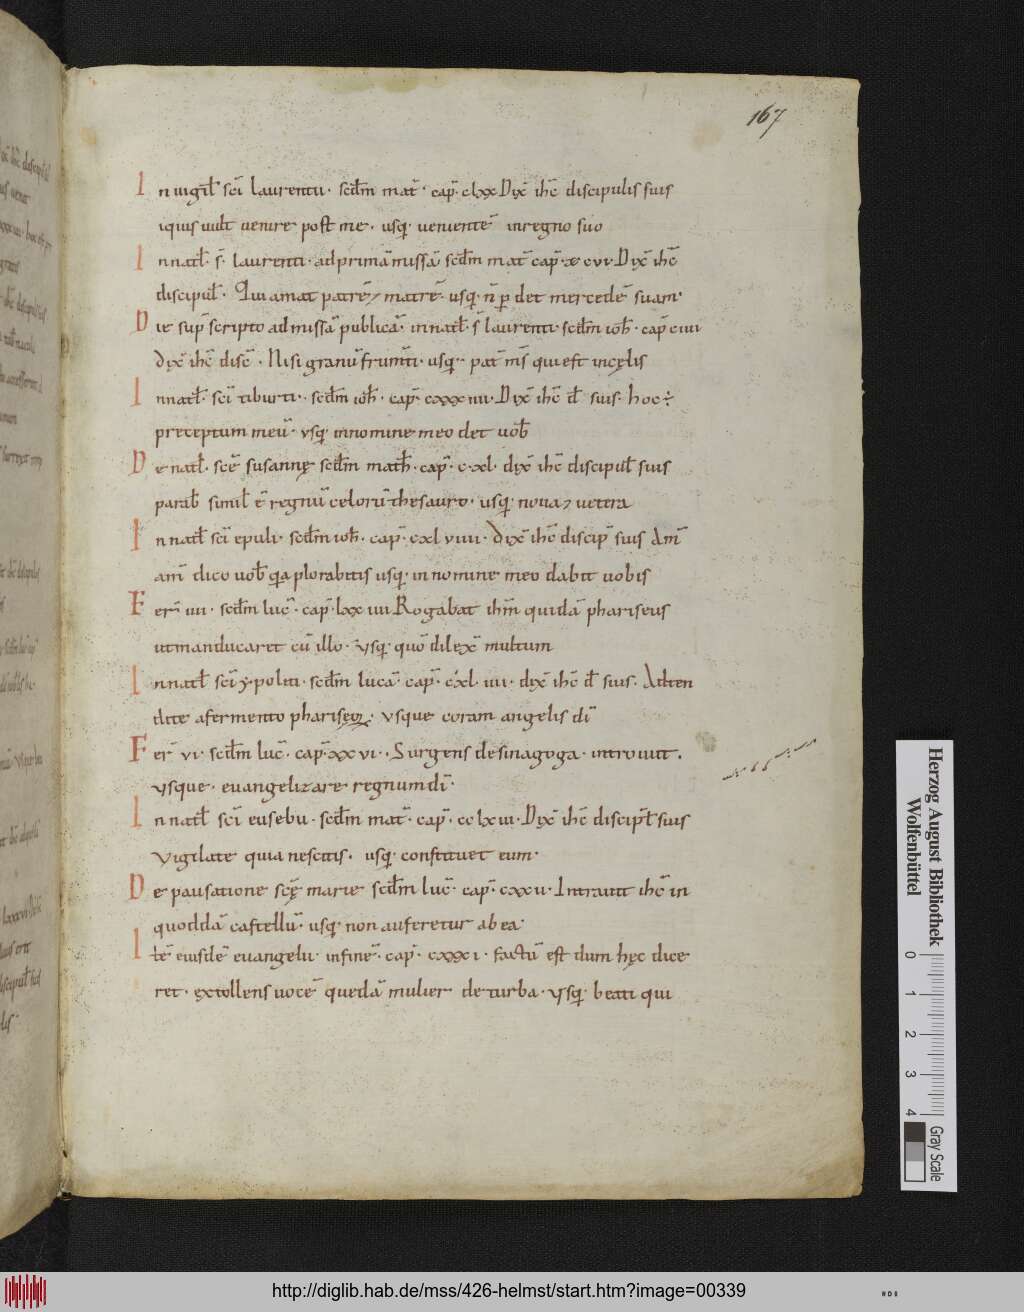 167
In uigil̄ sc̄i laurentii· scd̄m mat̄· cap̄· clxx Dix̄ ih̄c discipulis suis
iquis uult uenire post me· usq· ueniente᷑ in regno suo
In natl̄· s̄· laurenti· ad primā missā scd̄m mat̄ cap̄· xcvi· Dix̄ ih̄c
discipul̄· Qui amat patrē ⁊ matrē· usq· n̄ p̄det mercedē suam·
Die sup̄scripto ad missā publicā· in natl̄· s̄ laurenti· scd̄m ioh̄· cap̄ ciiii
dix̄ ih̄c disc̄· Nisi granū frum̄ti· usq· pat̄ m̄s qui est in cęlis
In natl̄· sc̄i tiburti· scd̄m ioh̄· cap̄· cxxxiiii· Dix̄ ih̄c d̄l suis· hoc ÷
preceptum meū· usq· in nomine meo det uob̄
De natl̄· scē susannę scd̄m math̄· cap̄· cxl· dix̄ ih̄c discipul̄ suis
parab̄ simil̄ ē regnū celorū thesauro· usq· noua ⁊ uetera
In natl̄ sc̄i epuli· scd̄m ioh̄· cap̄· cxlviiii· dix̄ ih̄c discip̄ suis Am̄
am̄ dico uob̄ qa plorabitis usq· in nomine meo dabit uobis
Fer̄ iiii· scd̄m luc̄· cap̄· lxxiiii Rogabat ih̄m quidā phariseus
ut manducaret cū illo· usq· quō dilex̄ multum
In natl̄ sc̄i ypoliti· scd̄m lucā· cap̄· cxl iiii· dix̄ ih̄c d̄l suis· Adten
dite a fermento phariseoꝝ· usque coram angelis dī
Fer̄ vi· scd̄m luc̄· cap̄· xxvi· Surgens de sinagoga· introiuit·
usque· euangelizare regnum dī·
In natl̄ sc̄i eusebii· scd̄m mat̄· cap̄· cclxiii· Dix̄ ih̄c discipl̄ suis
Vigilate quia nescitis· usq· constituet eum·
De pausatione scę marie scd̄m luc̄· cap̄· cxxii· Intrauit ih̄c in
quoddā castellū· usq· non auferetur ab ea·
Itē eiusdē euangelii· in finē· cap̄· cxxxi· factū est dum hęc dice
ret· extollens uocē quedā mulier de turba· usq· beati qui
Herzog August Bibliothek
Wolfenbüttel
0 1 2 3 4
Gray Scale
http://diglib.hab.de/mss/426-helmst/start.htm?image=00339